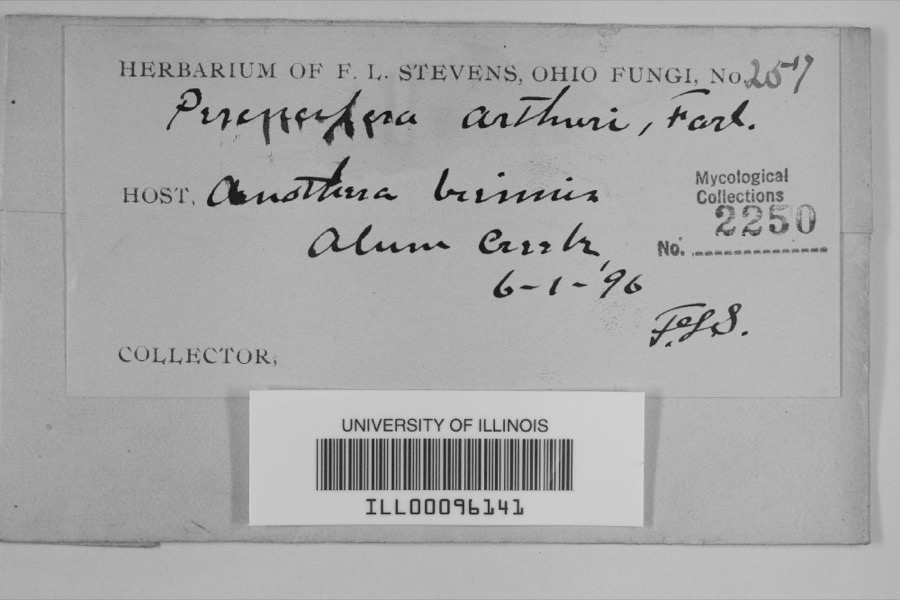 HERBARIUM OF F. L. STEVENS, OHIO FUNGI, No. 257
arthuri, Farl.
HOST,
Alum Creek,
6-1-'96
F.L.S.
COLLECTOR,
Mycological
Collections
No. 2250
UNIVERSITY OF ILLINOIS
ILL00096141